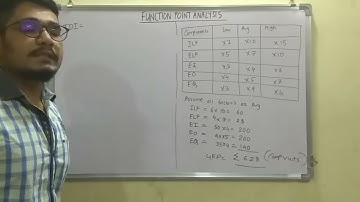 FUNCTION POINT ANALYSIS
TDI=
Components Low Avg High
ILF x7 x10 x15
ELF x5 x7 x10
EI x3 x4 x6
EO x4 x5 x7
EQ x3 x4 x6
Assume all factors as Avg
ILF = 6x10= 60
ELF = 4x7= 28
EI = 50x4= 200
EO = 40x5= 200
EQ = 35x4 = 140
UFP= Σ 628